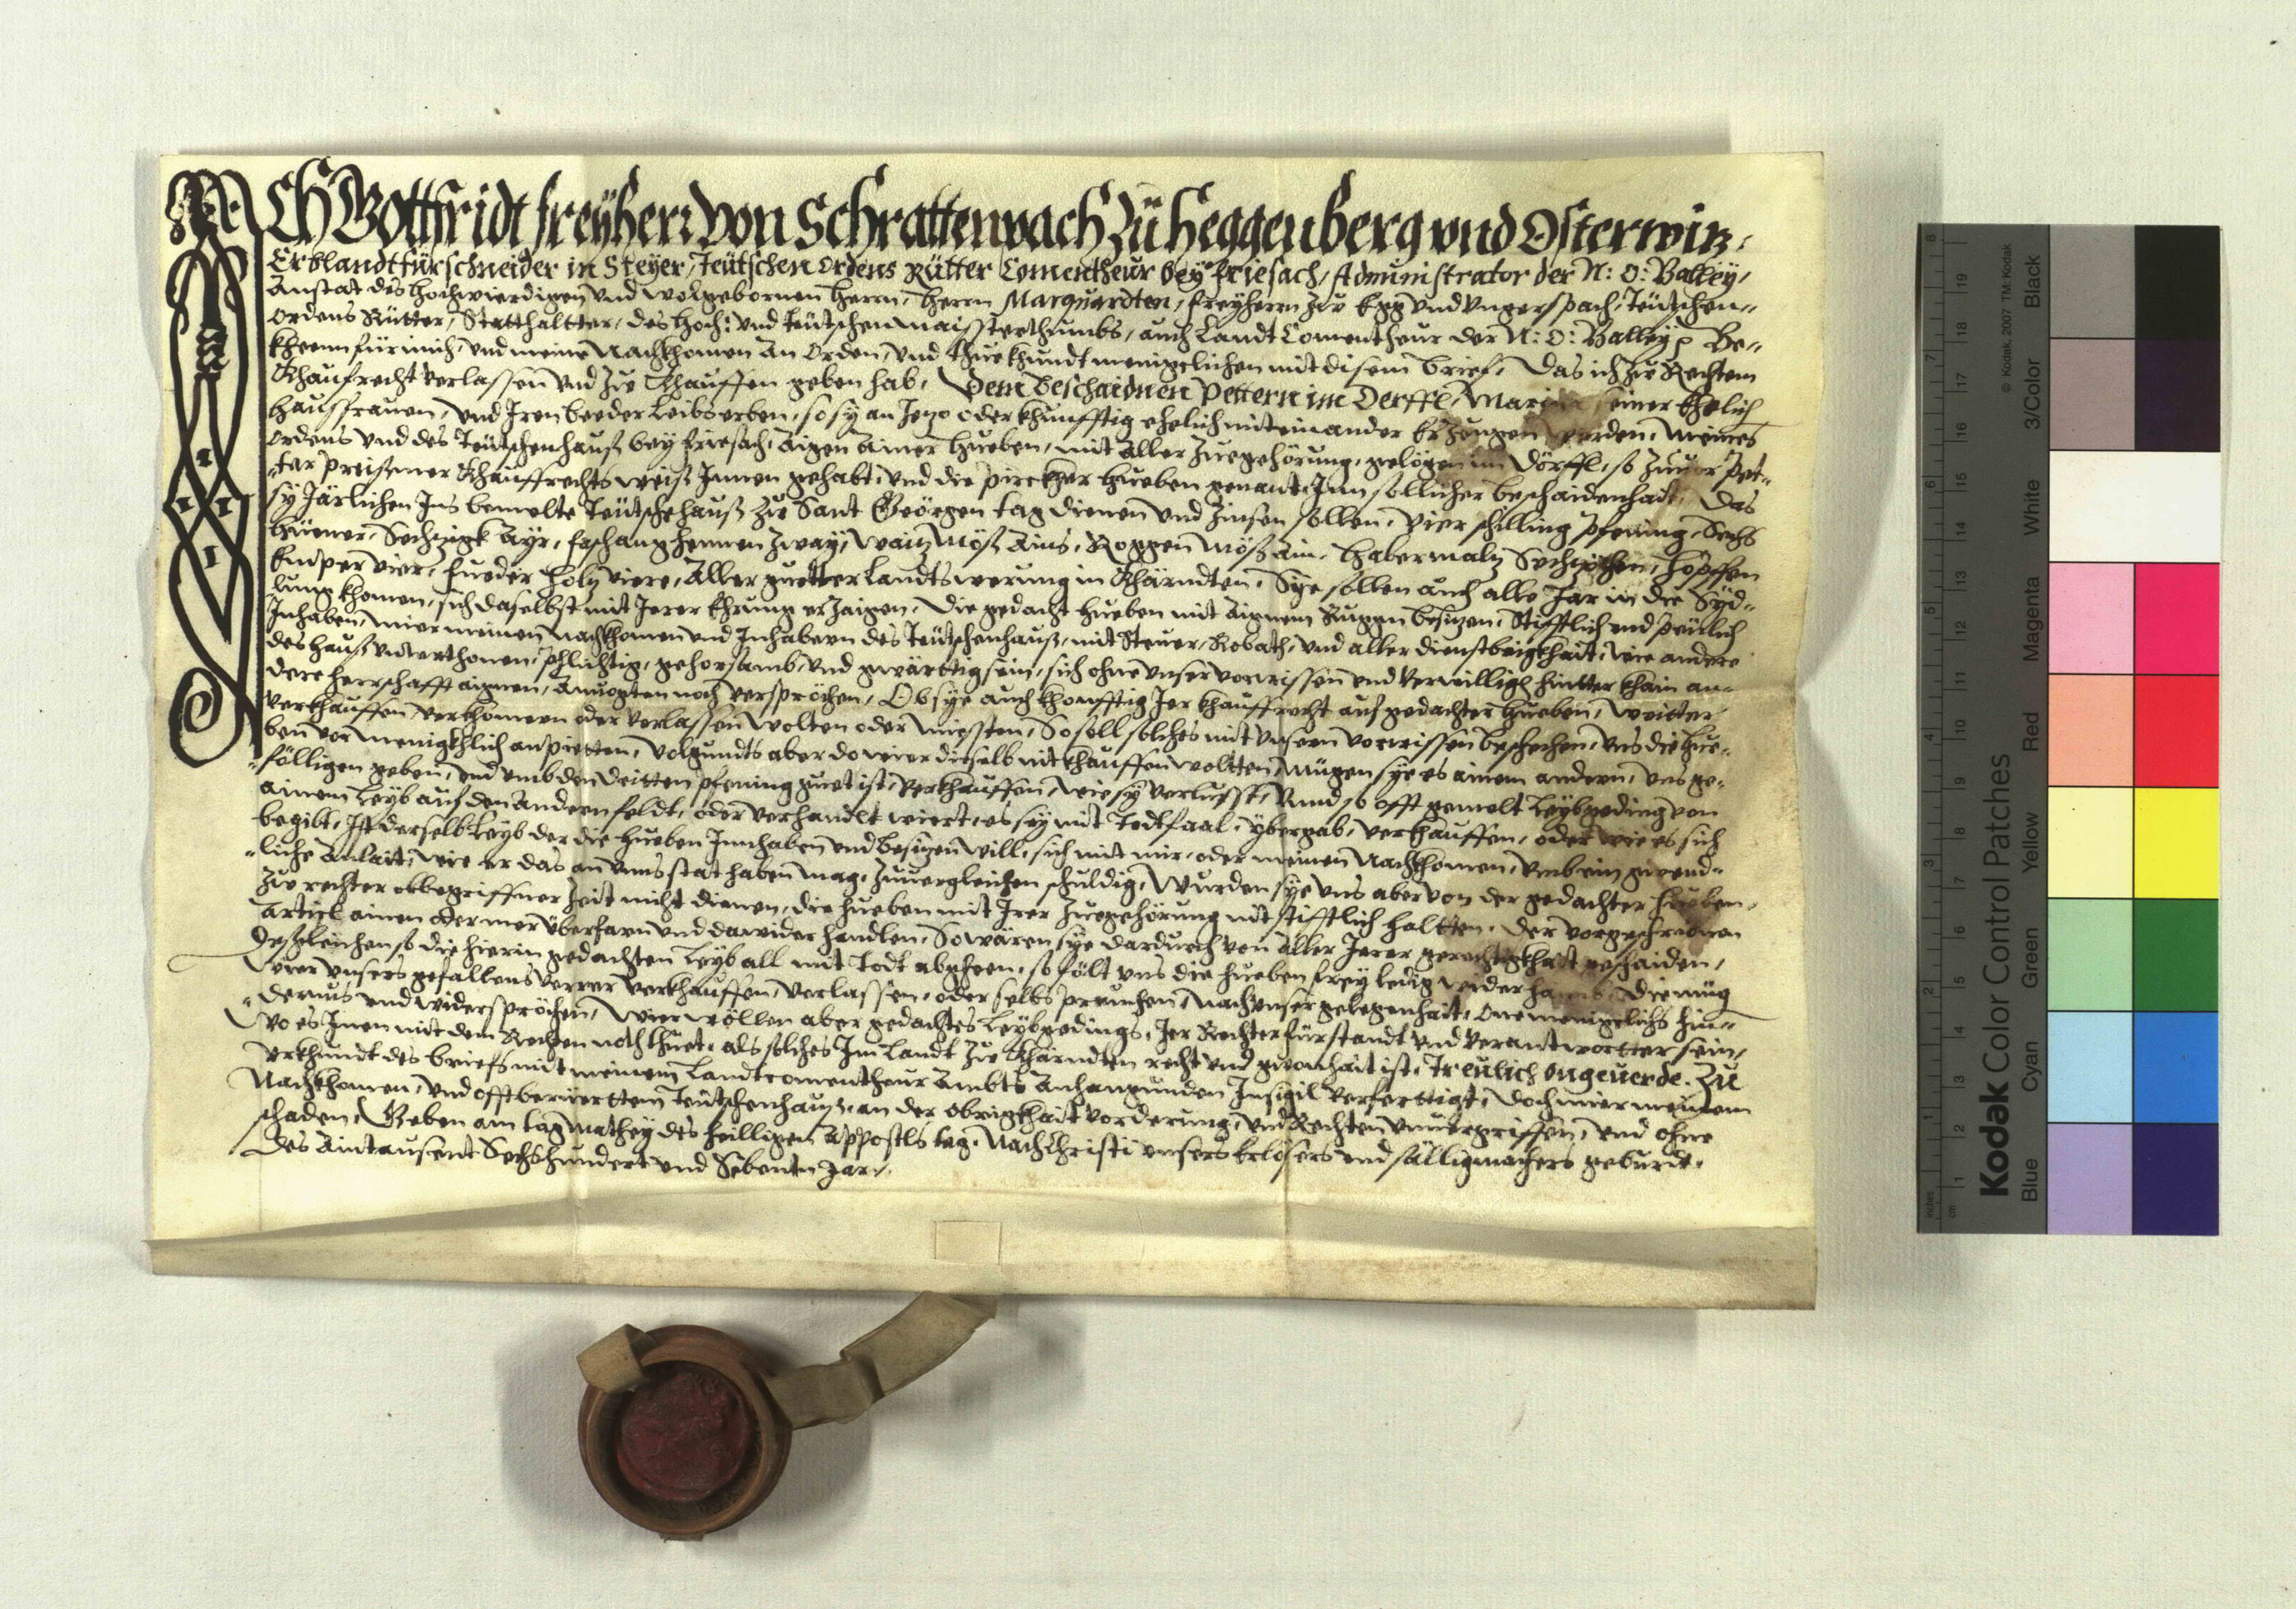 ICH Gottfridt freyherr von Schrattenpach zu Heggenberg vnd Osterwitz,
Erblandtfürschneider in Steyer, Teütschen Ordens Rütter Comentheur bey friesach, Administrator der N: O: Balley,
Anstat des Hochwierdigen vnd wolgebornen Herrn, Herrn Marquardten, freyherrn zu Egg vnd Vngerspach, Teütschen
Ordens Rütter, Statthaltter, des Hoch: vnd teütschen maisterthumbs, auch Landt Comentheur der N: O: Balley Be„
khenn für mich, vnd meine Nachkhomen an Orden, vnd thue khundt menigelichen mit disem brief, Das ich zu Rechtem
Khaufrecht verlassen vnd zu Khauffen geben hab, Dem Beschaidnen Pettern im Derffl, seiner Ehelich
Haussfrauen, vnd Iren beeder Leibs erben, so sy an Jezo oder khunfftig ehelich miteinander Erzeugen werden, meines
Ordens vnd des Teütschenhauß bey friesach, aigen ainer Hueben, mit Aller Zuegehörung, gelögen im Dörffl, so Zuuor Pet„
„ter Khauffrechts weiß Innen gehabt, vnd die Hueben genant, Inn sollicher beschaidenhait, Das
sy Järlichen Ins bemelte Teütschehauß zu Sant Geörgen tag dienen vnd Zinsen sollen, Vier schilling Pfening, Sechs
Hüener, Sechzigk Ayr, faschanghennen zway, Waiz Möß Ains, Roggen Möß Ain, Habermalz Höpffen
vier, fueder Holz viere, Aller guetter Landts werung in Khärndten, Sye sollen auch alle Jar in die
khomen, sich daselbst mit Irer Ehrung erzaigen, Die gedacht Hueben mit aignem Ruggn besizen, Stifftlich vnd Peülich
Inhaben, mier meinen Nachkhomen vnd Inhabern des Teütschenhauß, mit Steuer, Robath, vnd aller dienstbarkhait, wie andere
des Hauß vnderthonen, Phlichtig, gehorsamb, vnd gwärttig sein, sich ohne vnser vorwissen vnd Verwillig hintter khain an„
dere herrschafft aignen, noch verspröchen, Ob sye auch khonfftig Ier khauffrecht auf gedachter Hueben, weitter
verkhauffen, verkhomern oder verlassen wolten oder muesten, So soll solches mit vnserm vorwissen beschechen, vns die Hue„
ben vor menigkhlich anpietten, Volgundts aber do wier dieselb nit khauffen woltten, Mügen sye es ainem andern, vns ge„
„fölligen geben, vnd vmb den dritten Pfening guet ist, Verkhauffen, Vnnd so offt gemelt Leybgeding von
ainem Leyb auf den andern feldt, oder verhandlt wiert, es sey mit Todtfaal, ybergab, verkhauffen, oder wie es sich
begibt, Ist derselb Leyb der die Hueben Innhaben vnd besizen will, sich mit mir, oder meinen Nachkhomen, vmb ein
„liche Anlait, wie er das an vnns stat haben mag, Zuuergleichen schuldig, Wurden sye vns aber von der gedachter Hueben,
zu rechter obbegriffner Zeit nicht dienen, die Hueben mit Irer Zuegehörung nit stifftlich haltten, der vorgeschribnen
Articl ainen oder mer überfarn vnd dawider handlen, So wären sye dardurch von aller Irer gerechtigkhait geschaiden,
Desgleichen so die hierin gedachten Leyb all mit Todt abgheen, so fölt vns die Hueben frey ledig wider haimb, Die müg
wier vnsers gefallens verrer verkhauffen, verlassen, oder selbs Prauchen, Nach vnser gelegenhait, One menigelichs hin„
„dernus vnd widerspröchen, Wier wöllen aber gedachtes Leybgedings, Ier Rechter fürstandt vnd verantwortter sein,
Wo es Inen mit dem Rechten noth thuet, als solches Im Landt zu Khärndten recht vnd gwonhait ist, Treulich ongeuerde. Zu
Vrkhundt des briefs mit meinem Landtcomentheur Ambts Anhangunden Insigil verferttigt, doch mier meinem
Nachkhomen, vnd offtberüerttem Teütschenhauß, an der Obrigkhait vorderung, vnd Rechten vnuergriffen, vnd ohne
schaden, Geben am tag Mathey des heilligen Appostls tag, Nach Christi vnsers Erlösers vnd sälligmachers geburdt,
Des Aintausent Sechshundert vnd Sibenten Jar.
Kodak Color Control Patches
© Kodak, 2007 TM: Kodak
Blue Cyan Green Yellow Red Magenta White 3/Color Black
inches 1 2 3 4 5 6 7 8
cm 1 2 3 4 5 6 7 8 9 10 11 12 13 14 15 16 17 18 19